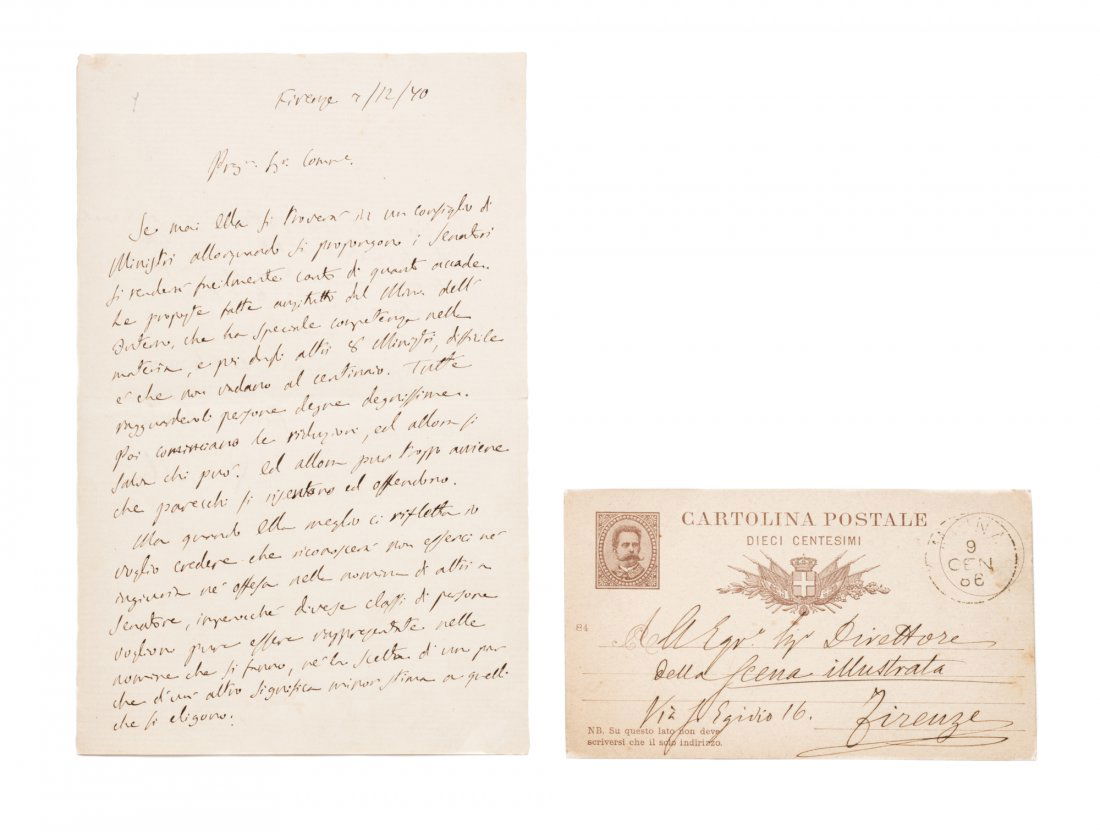 Firenze 7/12/90
Preg. Sgr. Comm.
Se mai Ella si troverà in un consiglio di
Ministri allorquando si propongono i Senatori
si renderà facilmente conto di quanto accade.
Le proposte fatte anzitutto dal Minro dell'
Interno, che ha speciale competenza nella
materia, e poi dagli altri 8 Ministri, difficile
è che non vadano al centinaio. Tutte
ragguardevoli persone degne degnissime.
Poi cominciano le riduzioni, ed allora si
salva chi può. Ed allora pur troppo avviene
che parecchi si risentono ed offendono.
Ma quando Ella meglio ci rifletta io
voglio credere che riconoscerà non esserci nè
ingiuria nè offesa nella nomina di altri a
Senatore, imperochè diverse classi di persone
vogliono pure essere rappresentate nelle
nomine che si fanno, nè la scelta di uno più
che d'un altro significa minor stima a quelli
che si eligono.
CARTOLINA POSTALE
DIECI CENTESIMI
9
GEN
86
84
All Egr. Sigr Direttore
della Scena illustrata
Via S. Egidio 16.
Firenze
NB. Su questo lato non deve
scriversi che il solo indirizzo.